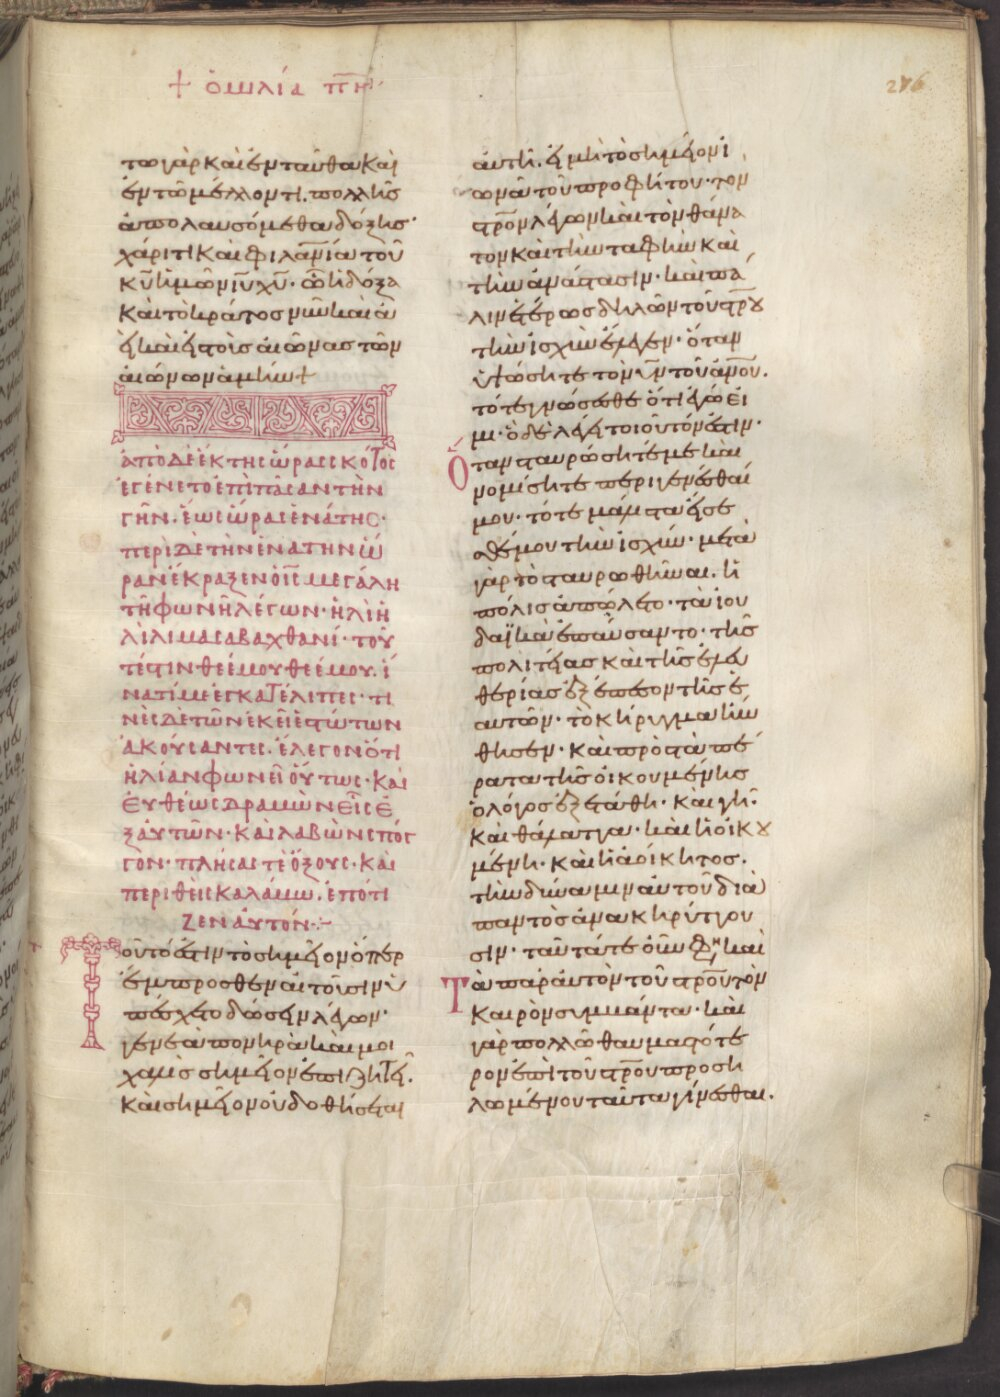 + ὁμιλία πη
276
τω γὰρ καὶ ἐνταῦθα καὶ
ἐν τῶ μέλλοντι. πολλῆς
ἀπολαυσόμεθα δόξης·
χάριτι καὶ φιλανίαι τοῦ
κυ ἡμῶν ιυ χυ· ὧ ἡ δόξα
καὶ τὸ κράτος νῦν καὶ ἀ
εὶ καὶ εἰς τοὺς αἰῶνας τῶν
αἰώνων ἀμήν +
ἀπὸ δὲ ἕκτης ὥρας σκότος
ἐγένετο ἐπὶ πᾶσαν τὴν
γῆν. ἕως ὥρας ἐνάτης·
περὶ δὲ τὴν ἐνάτην ὥ
ραν ἔκραξεν ὁ ις μεγάλη
τῆ φωνῆ λέγων· ἠλὶ ἠ
λὶ λιμὰ σαβαχθανί· τοῦ
τέστιν θεέ μου θεέ μου. ἱ
νατί με ἐγκατέλιπες· τι
νὲς δὲ τῶν ἐκεῖ ἑστώτων
ἀκούσαντες. ἔλεγον ὅτι
ἠλίαν φωνεῖ οὗτως· καὶ
εὐθέως δραμὼν εἷς ἐ
ξ αὐτῶν· καὶ λαβὼν σπόγ
γον· πλήσας τὲ ὄξους· καὶ
περιθεὶς καλάμω. ἐπότι
ζεν αὐτόν·
Τοῦτό ἐστιν τὸ σημεῖον ὅπερ
ἔμπροσθεν αἰτοῦσιν ὑ
πέσχετο δώσειν λέγων·
γενεὰ πονηρὰ καὶ μοι
χαλὶς σημεῖον ἐπιζητεῖ.
καὶ σημεῖον οὐ δοθήσεται
αὐτῆ. εἰ μὴ τὸ σημεῖον ἰ
ωνᾶ τοῦ προφήτου· τὸν
στρον λέγων καὶ τὸν θάνα
τον καὶ τὴν ταφὴν καὶ
τὴν ἀνάστασιν· καὶ πά
λιν ἑτέρως δηλῶν τοῦ στρου
τὴν ἰσχὺν ἔλεγεν· ὅταν
ὑψώσητε τὸν υν τοῦ ανου.
τότε γνώσεσθε ὅτι ἐγώ εἰ
μι· ὃ δὲ λέγει τοιοῦτόν ἐστιν·
Ὅταν σταυρώσητέ με καὶ
νομίσητε περιγενέσθαι
μου· τότε μάλιστα εἴσε
σθέ μου τὴν ἰσχύν· μετὰ
γὰρ τὸ σταυρωθῆναι. ἡ
πόλις ἀπώλετο· τὰ ἰου
δαϊκὰ ἐπαύσαντο· τῆς
πολιτείας καὶ τῆς ἐλευ
θερίας ἐξέπεσον τῆς ἑ
αυτῶν· τὸ κήρυγμα ἤν
θησεν· καὶ πρὸς τὰ πέ
ρατα τῆς οἰκουμένης
ὁ λόγος ἐξετάθη· καὶ γῆ·
καὶ θάλαττα· καὶ ἡ οἰκου
μένη· καὶ ἡ ἀοίκητος.
τὴν δύναμιν αὐτοῦ διὰ
παντὸς ἀνακηρύττου
σιν· ταῦτά τε οὖν φη καὶ
Τὰ παρ' αὐτὸν τοῦ στρου τὸν
καιρὸν συμβάντα· καὶ
γὰρ πολλῶ θαυμαστότε
ρον ἐπὶ τοῦ στρου προση
λωμένου ταῦτα γίνεσθαι.